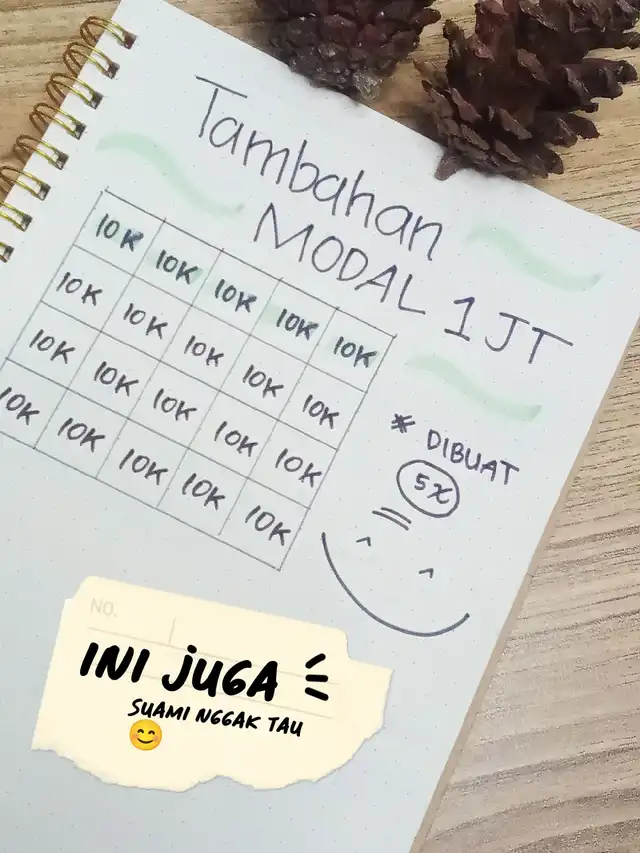 Tambahan
MODAL 1 JT
10K 10K 10K 10K 10K
10K 10K 10K 10K 10K
10K 10K 10K 10K 10K
10K 10K 10K 10K 10K
* DIBUAT
5x
NO.
INI JUGA
SUAMI NGGAK TAU